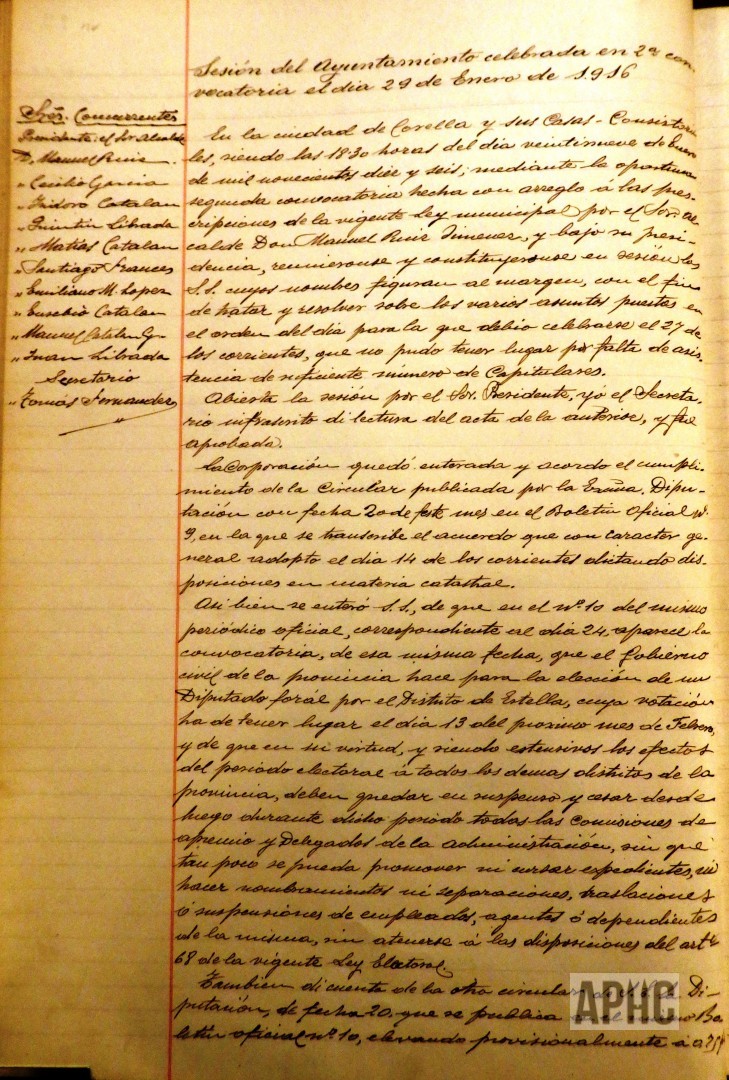 Sesión del Ayuntamiento celebrada en 2ª con-
vocatoria el dia 29 de Enero de 1.916
Sres. Concurrentes
Presidente: el Sor. Alcalde
D. Manuel Ruiz.
" Cecilio Garcia
" Isidoro Catalan
" Quintin Librada
" Matías Catalan
" Santiago Frances
" Emiliano M. Lopez
" Eusebio Catalan
" Manuel Catalan G.
" Juan Librada
Secretario
" Tomás Fernandez
En la ciudad de Corella y sus Casas-Consistoria-
les, siendo las 18'30 horas del dia veintinueve de Enero
de mil novecientos diez y seis; mediante la oportuna
segunda convocatoria hecha con arreglo á las pres-
cripciones de la vigente Ley municipal por el Sor. Al-
calde Don Manuel Ruiz Jimenez, y bajo su presi-
dencia, reunieronse y constituyeronse en sesión los
S.S. cuyos nombres figuran al margen, con el fin
de tratar y resolver sobe los varios asuntos puestos en
el orden del dia para la que debio celebrarse el 27 de
los corrientes, que no pudo tener lugar por falta de asis-
tencia de suficiente número de Capitulares.
Abierta la sesión por el Sr. Presidente, yó el Secreta-
rio infrascrito di lectura del acta de la anterior, y fue
aprobada.
La Corporación quedó enterada y acordo el cumpli-
miento de la Circular publicada por la Excma. Dipu-
tación con fecha 20 de este mes en el Boletin Oficial nº
9, en la que se transcribe el acuerdo que con caracter ge-
neral adopto el dia 14 de los corrientes dictando dis-
posiciones en materia catastral.
Asi bien se enteró S.S., de que en el nº 10 del mismo
periódico oficial, correspondiente al dia 24, aparece la
convocatoria, de esa misma fecha, que el Gobierno
civil de la provincia hace para la elección de un
Diputado forál por el Distrito de Estella, cuya votación
ha de tener lugar el dia 13 del proximo mes de Febrero,
y de que en su virtud, y siendo estensivos los efectos
del periodo electoral á todos los demas distritos de la
provincia, deben quedar en suspenso y cesar desde
luego durante dicho periodo todas las Comisiones de
apremio y Delegados de la administración, sin que
tan poco se pueda promover ni cursar espedientes, ni
hacer nombramientos ni separaciones, traslaciones
ó suspensiones de empleados, agentes ó dependientes
de la misma, sin atenerse á las disposiciones del artº
68 de la vigente Ley Electoral.
Tambien di cuenta de la otra circular Di-
putación, de fecha 20, que se publica Bo-
letin oficial nº 10, elevando provisionalmente á
APHC